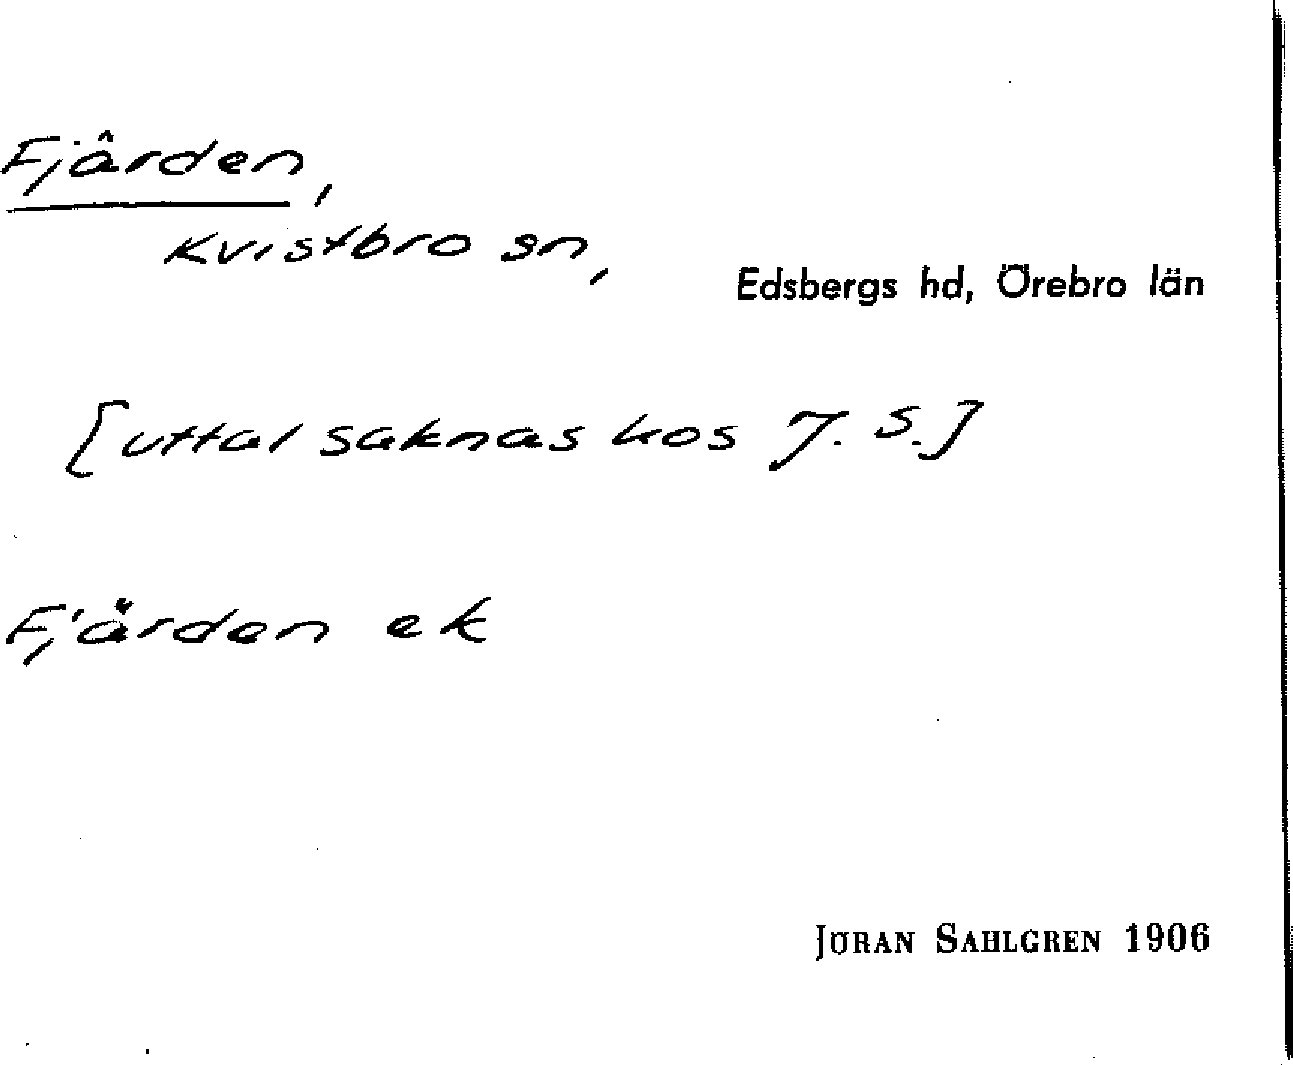 Fjärden,
Kvistbro sn,
Edsbergs hd, Örebro län
[uttal saknas hos J. S.]
Fjärden ek
JÖRAN SAHLGREN 1906